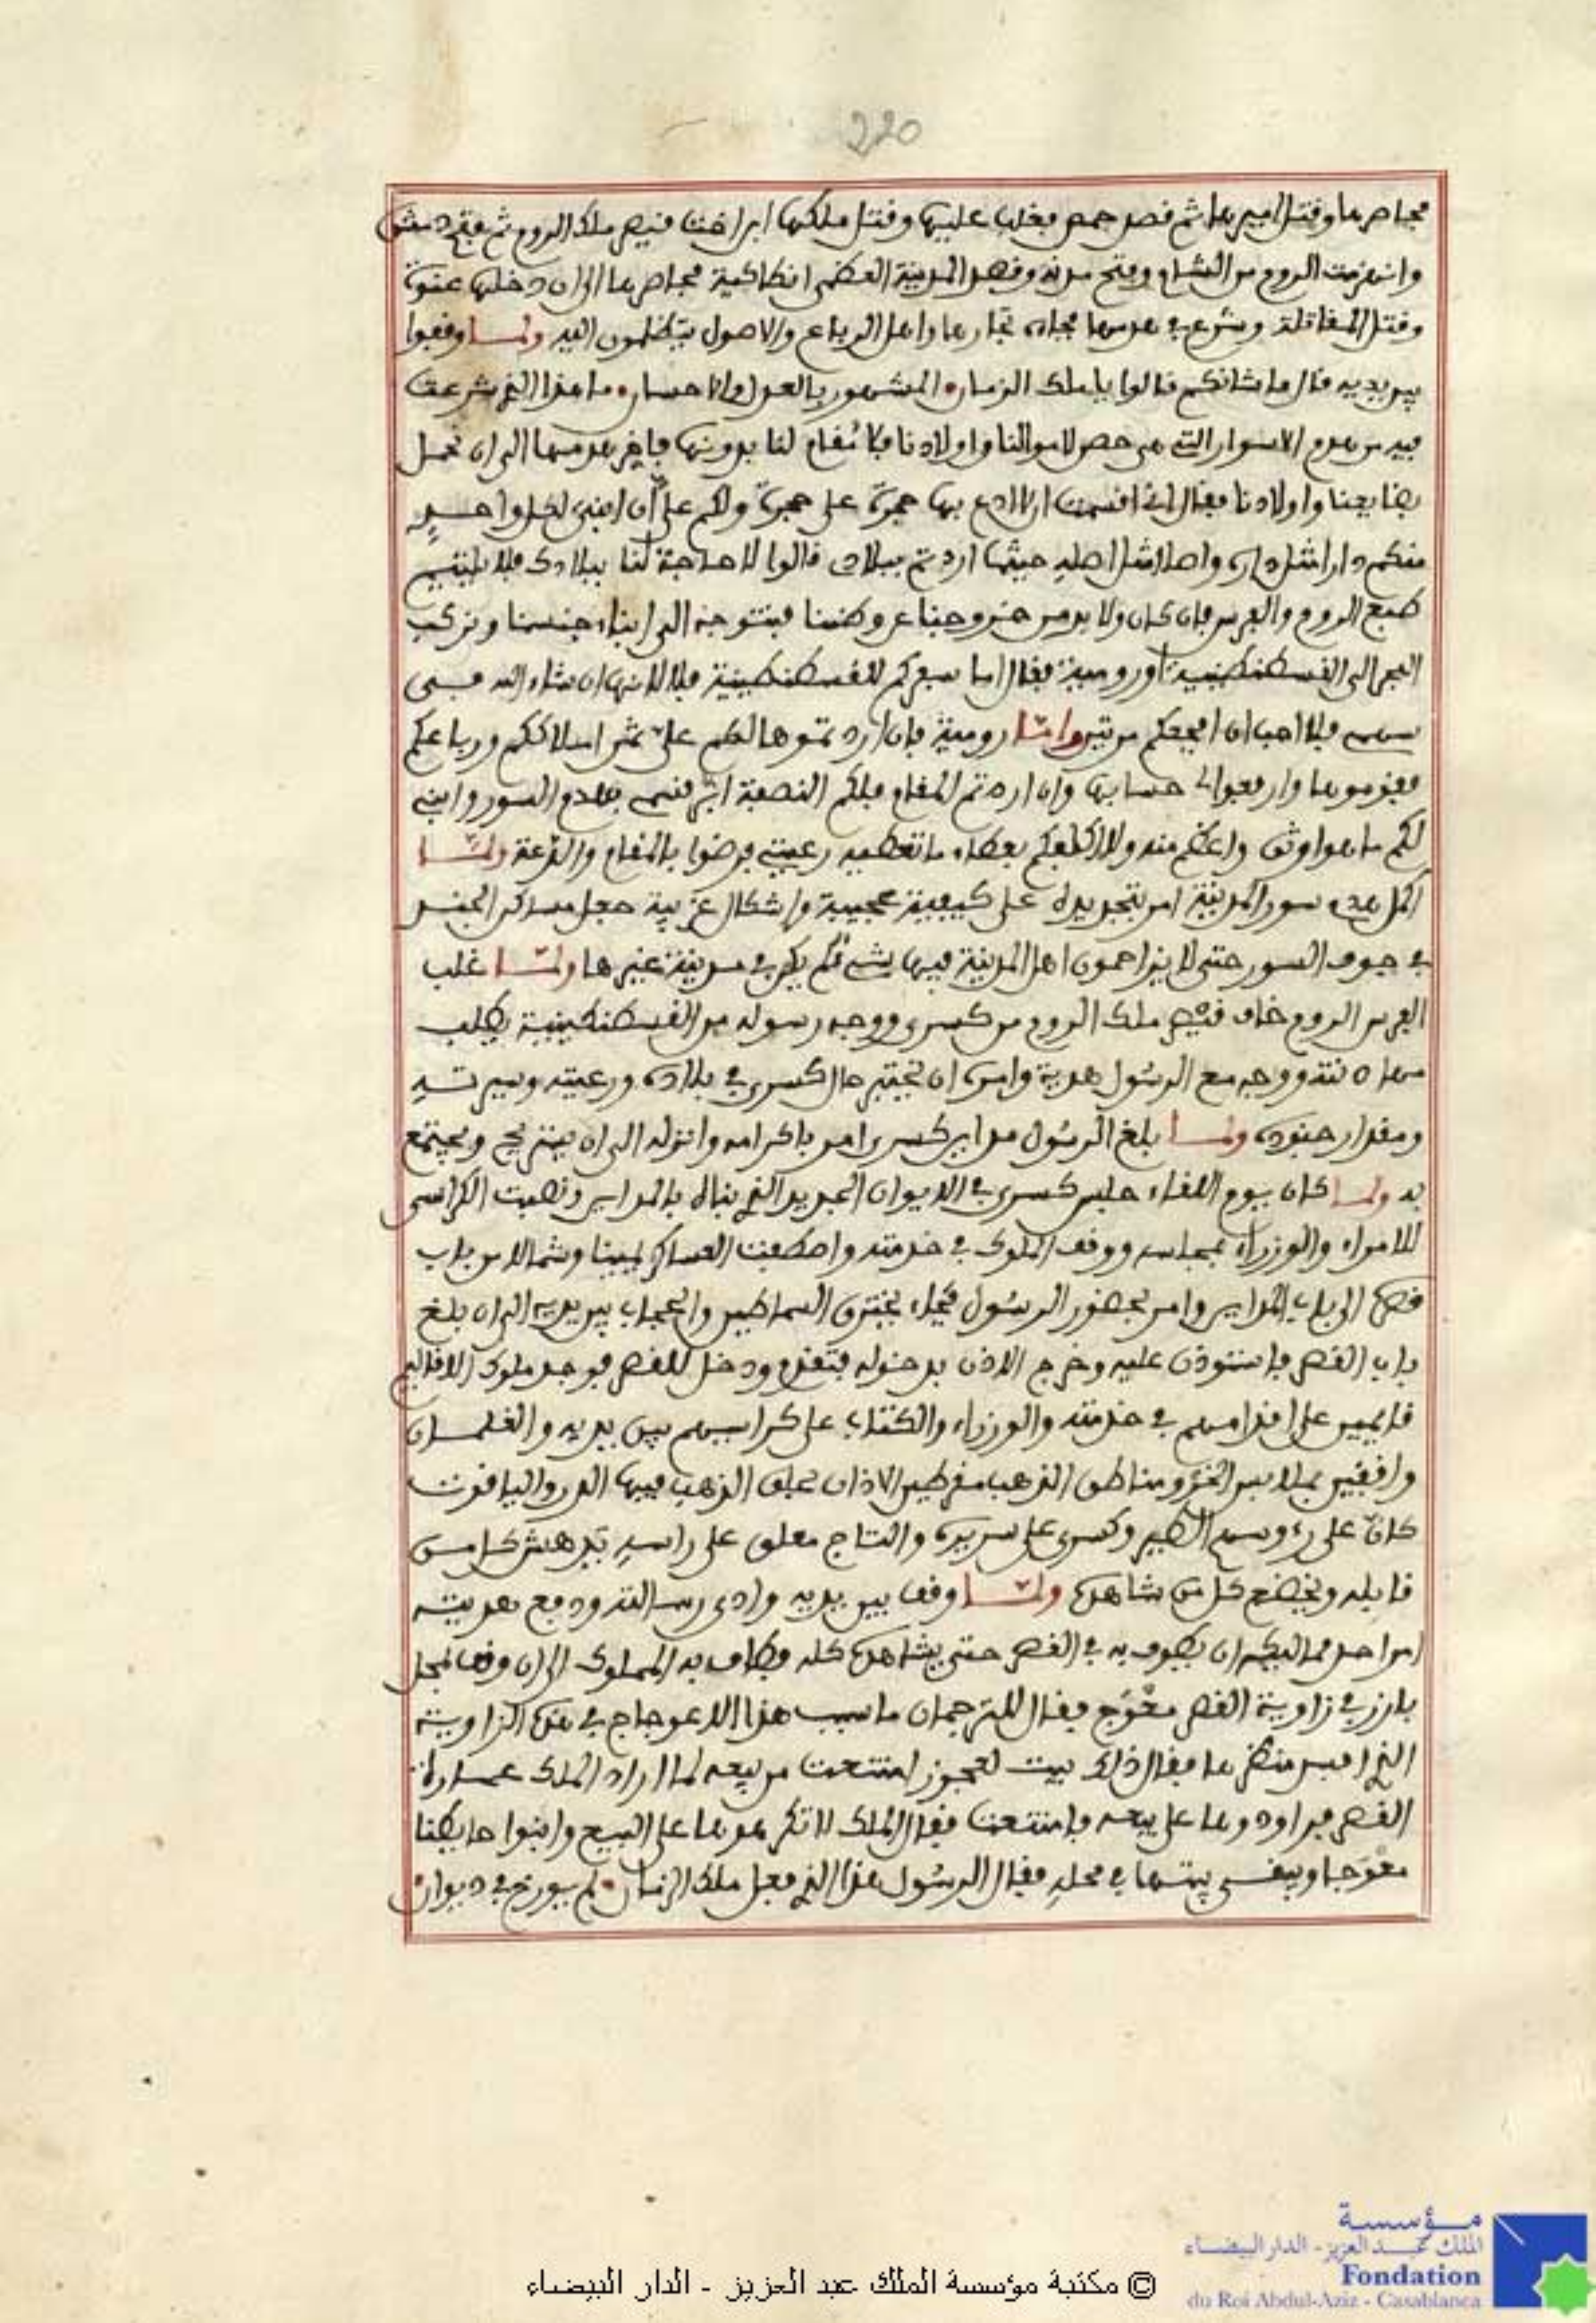 220
فحاصرها وقتل اميرها ثم قصد حمص فغلب عليها وقتل ملكها ابن اخت قيصر ملك الروم ثم فتح دمشق
وانهزمت الروم من الشام وفتح مدنه وقصد المدينة العظمى انطاكية فحاصرها الى ان دخلها عنوة
وقتل المقاتلة وشرع في هدمها فجاءه تجارها واهل الرباع والاصول يتظلمون اليه ولما وقفوا
بين يديه قال ما شانكم قالوا يا ملك الزمان المشهور بالعدل والاحسان ما هذا الذي شرعت
فيه من هدم الاسوار التي هي حصن لاموالنا واولادنا فلا مقام لنا بدونها فاخر هدمها الى ان نحمل
بضايعنا واولادنا فقال اني اقسمت ان لا ادع بها حجرة على حجرة ولكم علي ان ابني لكل واحد
منكم دارا مثل داره واصلا مثل اصله حيثما اردتم ببلادي قالوا لا حاجة لنا ببلادك فلا يلتئم
طبع الروم والفرس فان كان ولا بد من خروجنا عن وطننا فنتوجه الى ابناء جنسنا ونركب
البحر الى القسطنطينية او رومية فقال اما سفركم للقسطنطينية فلا لانها ان شاء الله
فلا احب ان افجعكم مرتين واما رومية فان اردتموها لكم علي ثمن املاككم ورباعكم
فقوموها وارفعوا لي حسابها وان اردتم المقام فلكم النصفة ابر قسمي بهدم السور وابني
لكم ما هو اوثق واعظم منه ولا اكلفكم بعطاء ما تعطيه رعيتي فرضوا بالمقام والقرعة ولما
اكمل هدم سور المدينة امر بتجديده على كيفية عجيبة واشكال غريبة جعل مساكن الجند
في جوف السور حتى لا يزاحمون اهل المدينة فيها بشيء لم يكن في مدينة غيرها ولما غلب
الفرس الروم خاف قيصر ملك الروم من كسرى ووجه رسوله من القسطنطينية يطلب
مهادنته ووجه مع الرسول هدية وامره ان يختبر حال كسرى في بلاده ورعيته وسيرته
ومقدار جنوده ولما بلغ الرسول مداين كسرى امر باكرامه وانزله الى ان يستريح ويجتمع
به ولما كان يوم اللقاء جلس كسرى في الايوان الجديد الذي بناه بالمداين ونصبت الكراسي
للامراء والوزراء بمجلسه ووقف الملوك في خدمته واصطفت العساكر يمينا وشمالا من باب
قصره الى باب المداين وامر بحضور الرسول فجاء يخترق السماطين والحجاب بين يديه الى ان بلغ
باب القصر فاستوذن عليه وخرج الاذن بدخوله فتقدم ودخل للقصر فوجد ملوك الاقاليم
قايمين على اقدامهم في خدمته والوزراء والكتاب على كراسيهم بين يديه والغلمان
واقفين بملابس الخز ومناطق الذهب مقرطين الاذان بحلق الذهب فيها الدر والياقوت
كان على رءوسهم الطير وكسرى على سريره والتاج معلق على راسه يدهش كل من
قابله ويخضع كل من شاهده ولما وقف بين يديه وادى رسالته ودفع هديته
امر احد مماليكه ان يطوف به في القصر حتى يشاهده كله وطاف به المملوك الى ان وقف لمحل
بارز في زاوية القصر معوج فقال للترجمان ما سبب هذا الاعوجاج في هذه الزاوية
الذي افسد منظرها فقال ذاك بيت لعجوز امتنعت من بيعه لما اراد الملك عمارة
القصر فراودوها على بيعه فامتنعت فقال الملك لا تكرهوها على البيع وابنوا حايطنا
معوجا ويبقى بيتها في محله فقال الرسول هذا الذي فعل ملك الزمان لم يورخ في ديوان
© مكتبة مؤسسة الملك عبد العزيز - الدار البيضاء
مؤسسة
الملك عبد العزيز - الدار البيضاء
Fondation
du Roi Abdul-Aziz - Casablanca